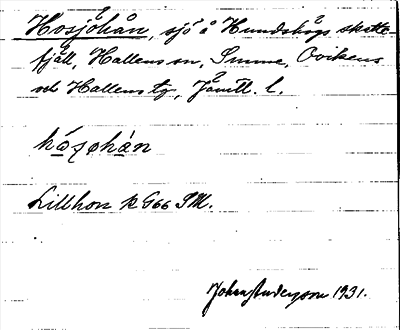 Hosjöhån, sjö å Hundshögs skatte-
fjäll, Hallens sn, Smme, Ovikens
och Hallens tg, Jämtl. l.
hósøhàn
Lillhon k G66 SM.
Johan Anderson 1931.